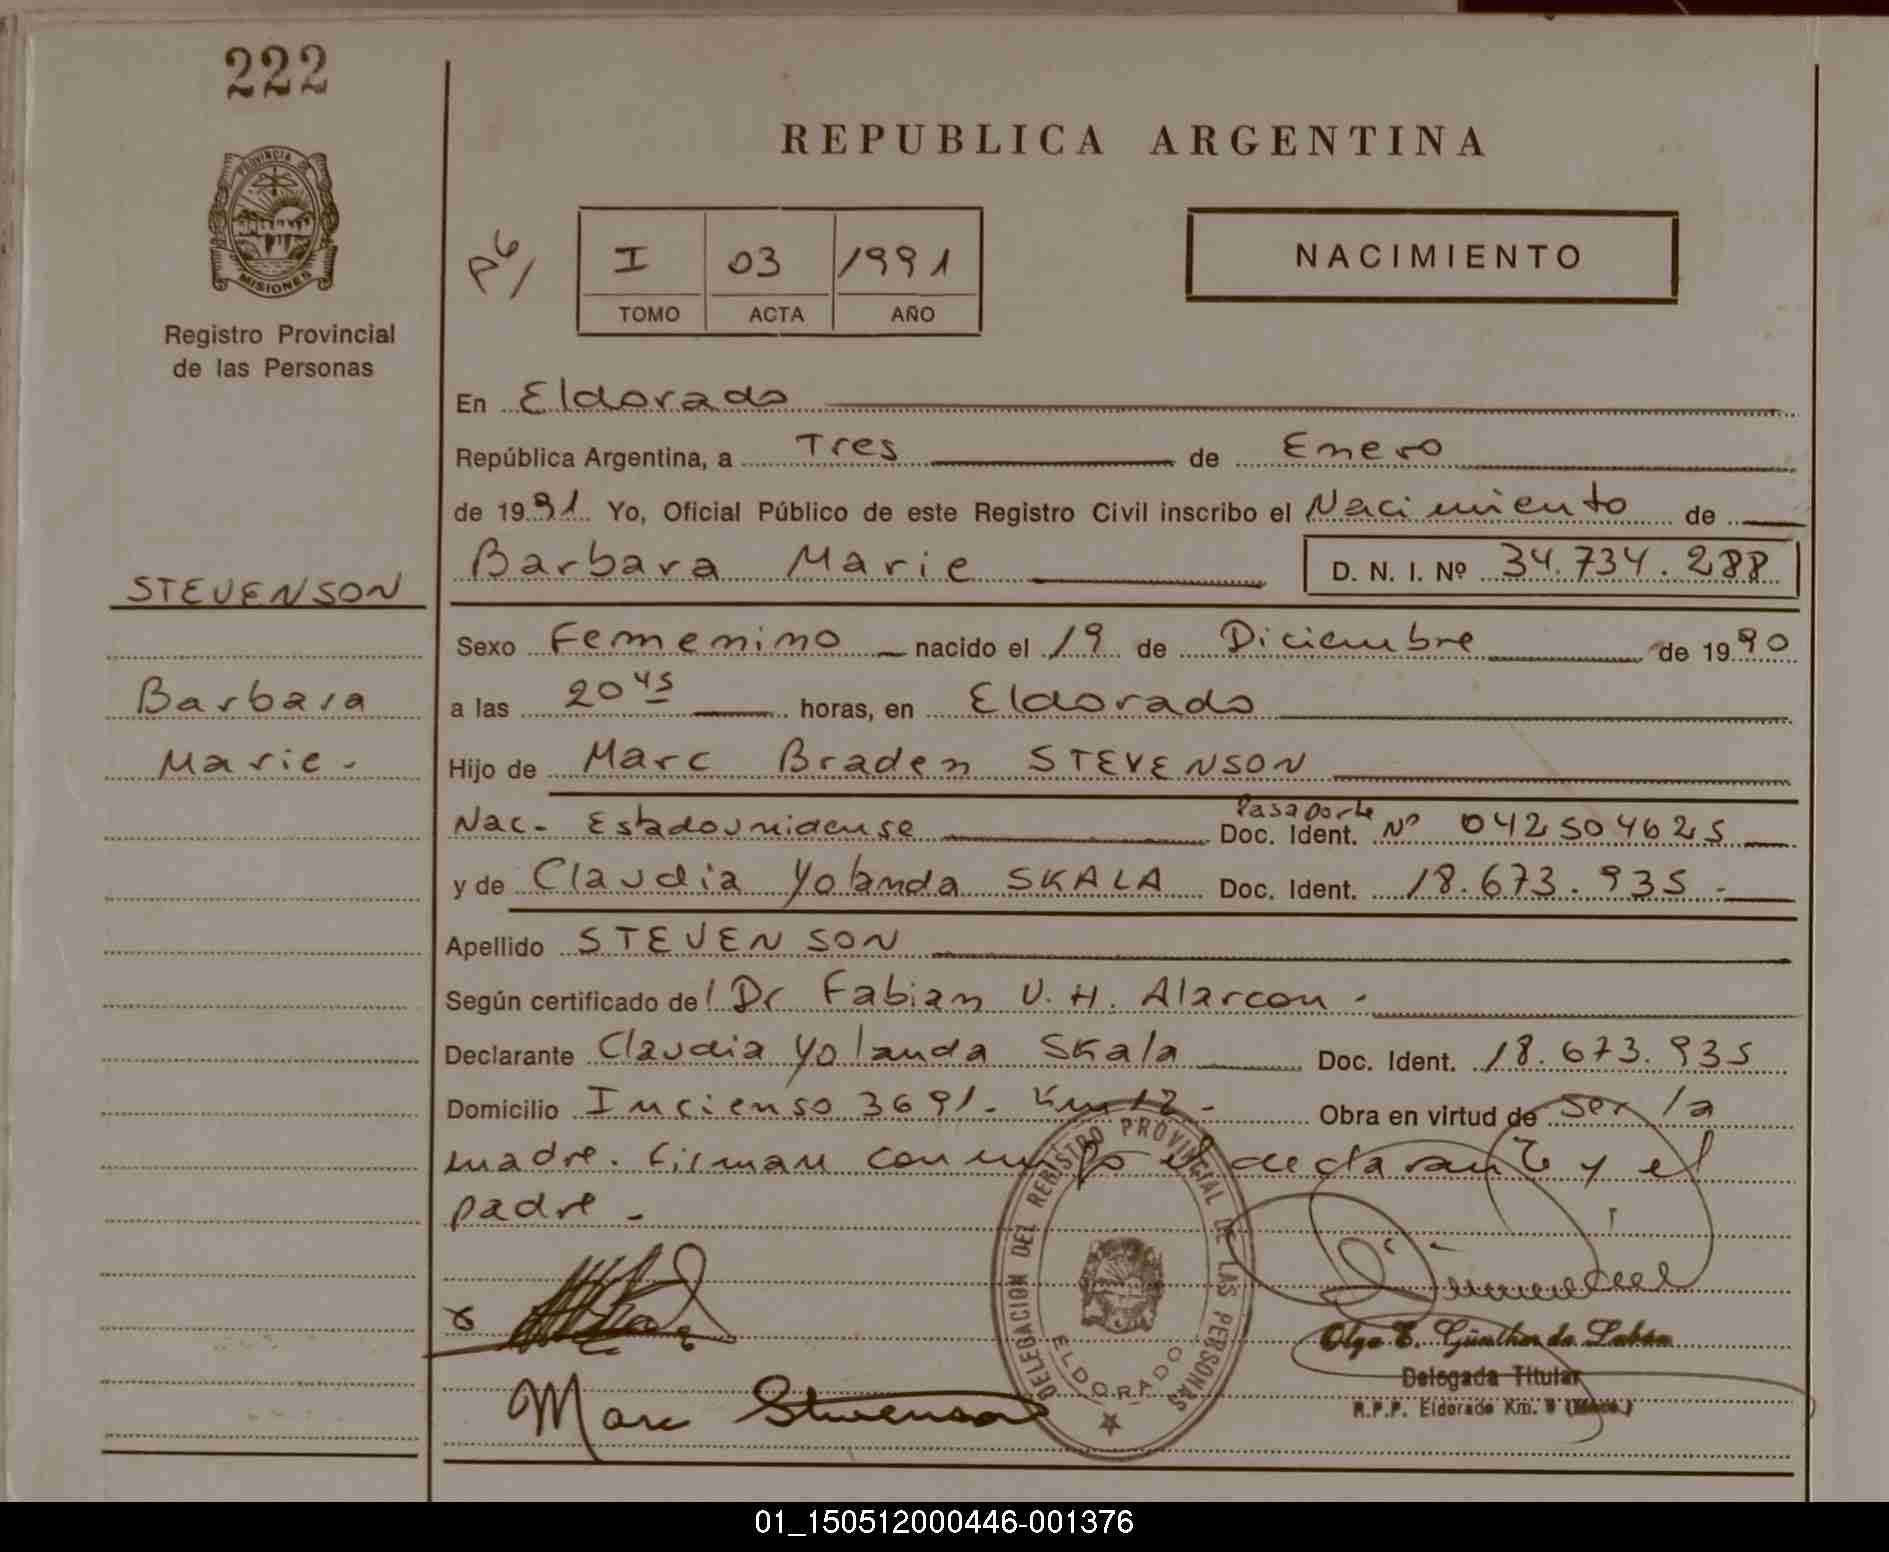 222
PROVINCIA DE
MISIONES
Registro Provincial
de las Personas
REPUBLICA ARGENTINA
I 03 1991
TOMO ACTA AÑO
NACIMIENTO
En Eldorado
República Argentina, a Tres de Enero
de 1991 Yo, Oficial Público de este Registro Civil inscribo el Nacimiento de
Barbara Marie D. N. I. Nº 34.734.288
STEVENSON
Sexo Femenino nacido el 19 de Diciembre de 1990
Barbara
a las 20 45 horas, en Eldorado
Marie.
Hijo de Marc Braden STEVENSON
Nac. Estadounidense Pasaporte Doc. Ident. Nº 042504625
y de Claudia Yolanda SKALA Doc. Ident. 18.673.935.
Apellido STEVENSON
Según certificado del Dr Fabian V. H. Alarcon.
Declarante Claudia Yolanda Skala Doc. Ident. 18.673.935
Domicilio Incienso 3691. Km 12 - Obra en virtud de ser la
madre. Firman conmigo el declarante y el
padre -
DELEGACION DEL REGISTRO PROVINCIAL DE LAS PERSONAS
ELDORADO
Marc Stevenson
Olga E. Günther de
Delegada Titular
R.P.P. Eldorado Km. 9
01_150512000446-001376